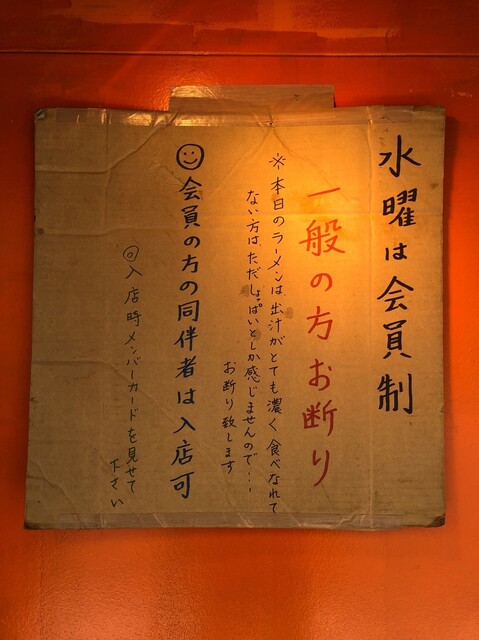 水曜は会員制
一般の方お断り
※本日のラーメンは、出汁がとても濃く食べなれて
ない方は、ただしょっぱいとしか感じませんので・・・
お断り致します
会員の方の同伴者は入店可
◎入店時メンバーカードを見せて
下さい